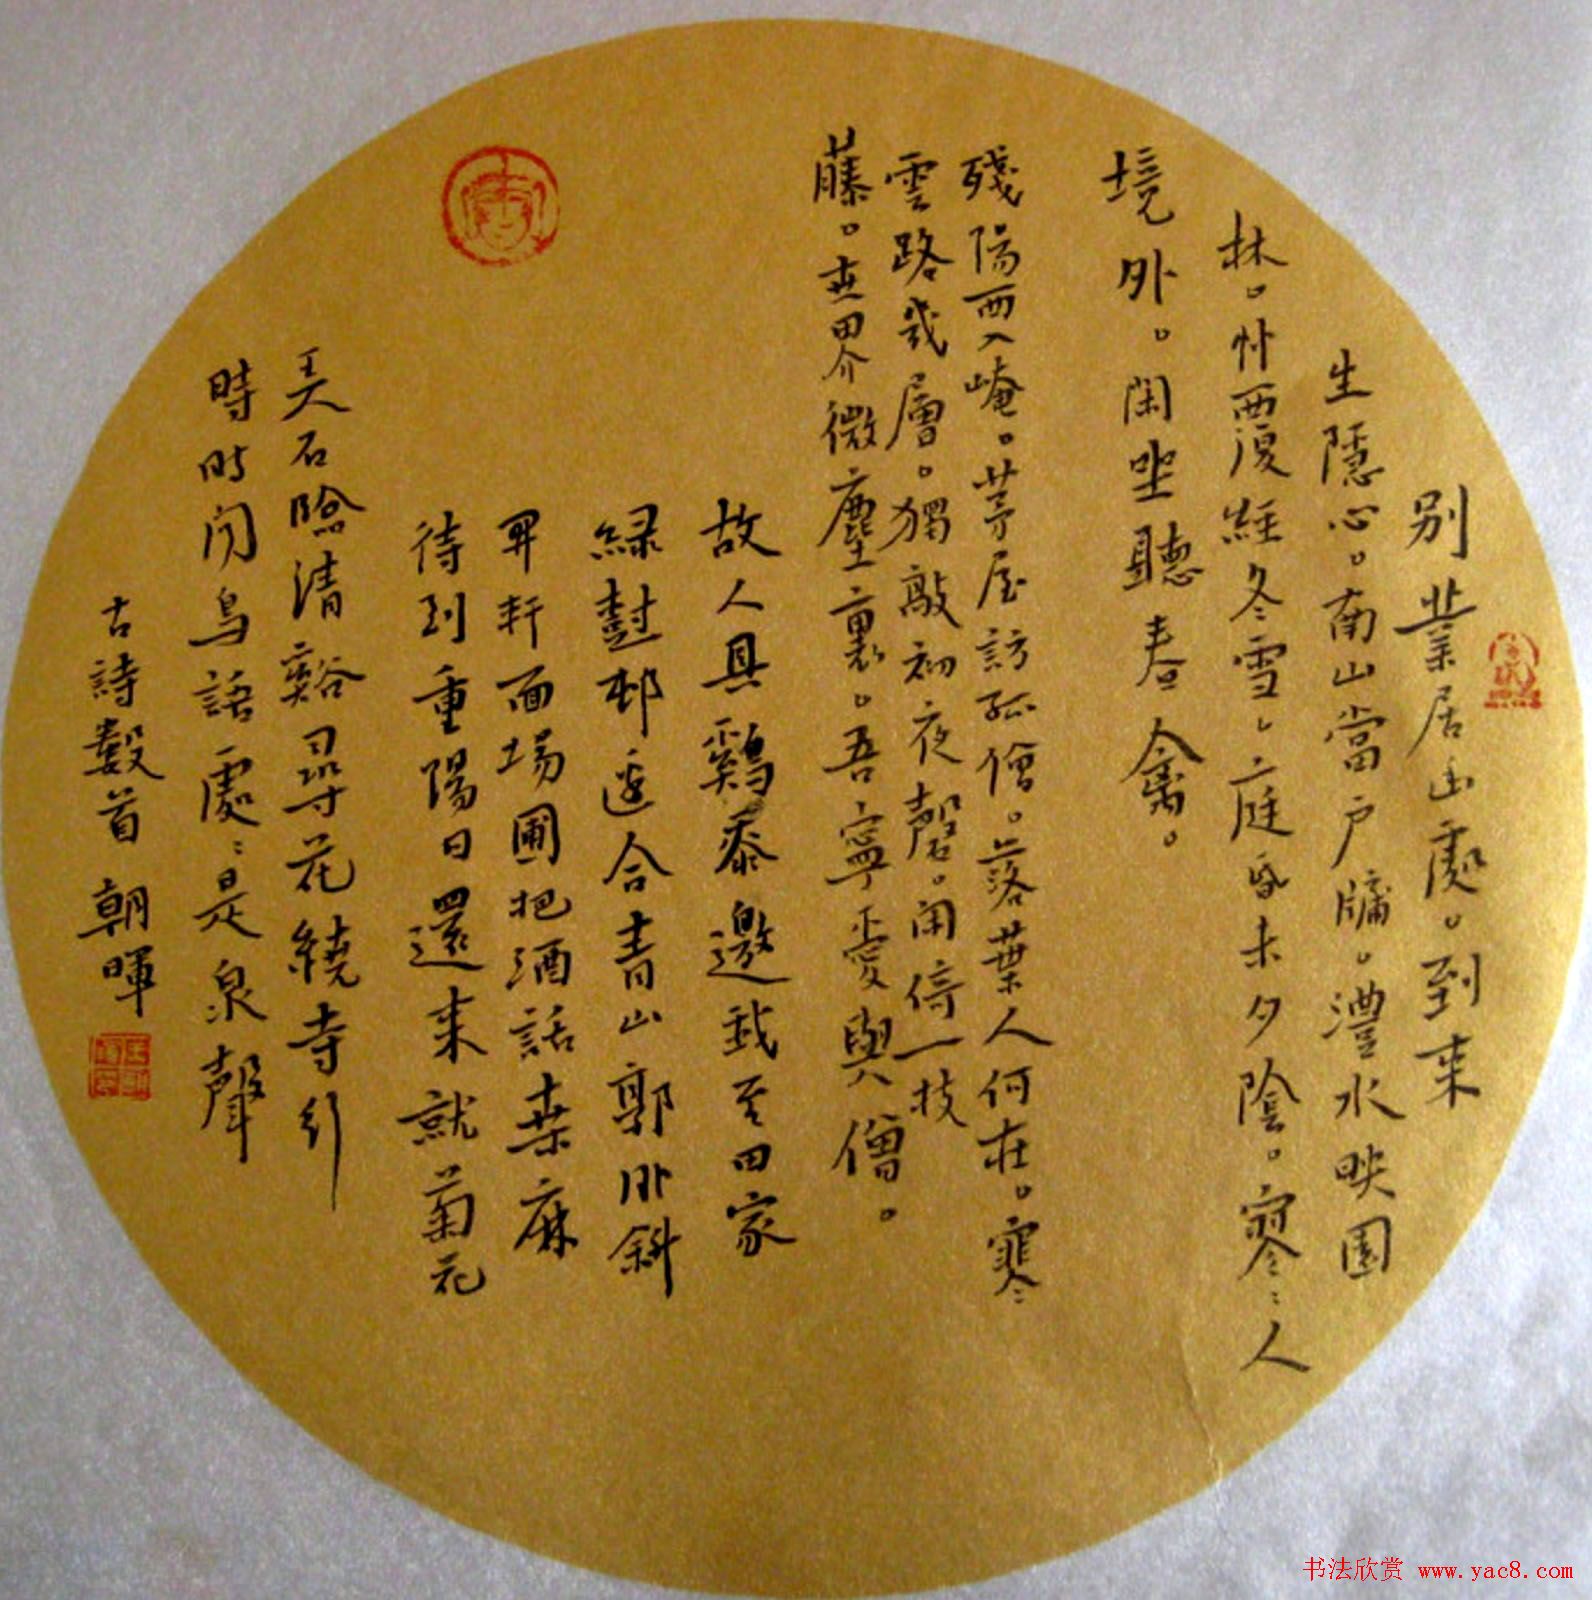 别業居幽處。到来
生隱心。南山當戶牖。灃水映園
林。竹覆經冬雪。庭昏未夕陰。寥〻人
境外。閑坐聽春禽。
殘陽西入崦。茅屋訪孤僧。落葉人何在。寒
雲路幾層。獨敲初夜磬。閑倚一枝
藤。世界微塵裏。吾寧愛與僧。
故人具鷄黍邀我至田家
緑樹邨邊合青山郭外斜
開軒面場圃把酒話桑麻
待到重陽日還来就菊花
弄石臨清谿尋花繞寺行
時時聞鳥語處〻是泉聲
古詩數首 朝暉
书法欣赏 www.yac8.com